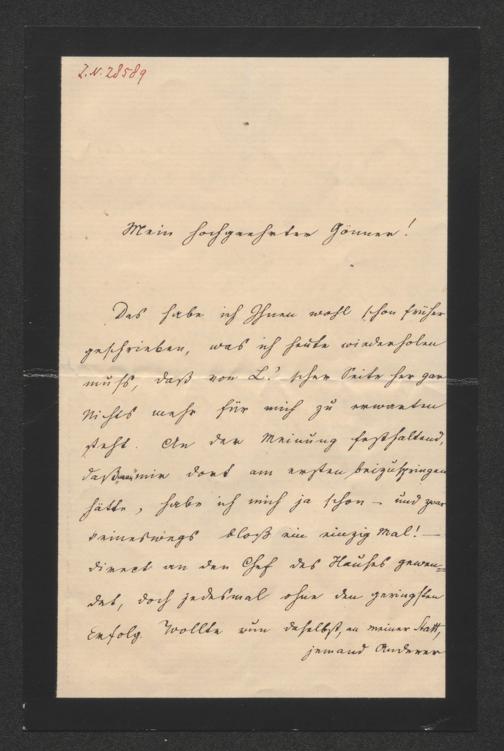 Z.N. 28589
Mein hochgeehrter Gönner!
Das habe ich Ihnen wohl schon früher
geschrieben, was ich heute wiederholen
muss, daß von L.' scher Seite her gar
Nichts mehr für mich zu erwarten
steht. An der Meinung festhaltend,
daß mir dort am ersten beizuspringen
hätte, habe ich mich ja schon – und zwar
keineswegs bloß ein einzig Mal! –
direct an den Chef des Hauses gewen=
det, doch jedesmal ohne den geringsten
Erfolg. Wollte nun daselbst, an meiner Statt,
jemand Anderer